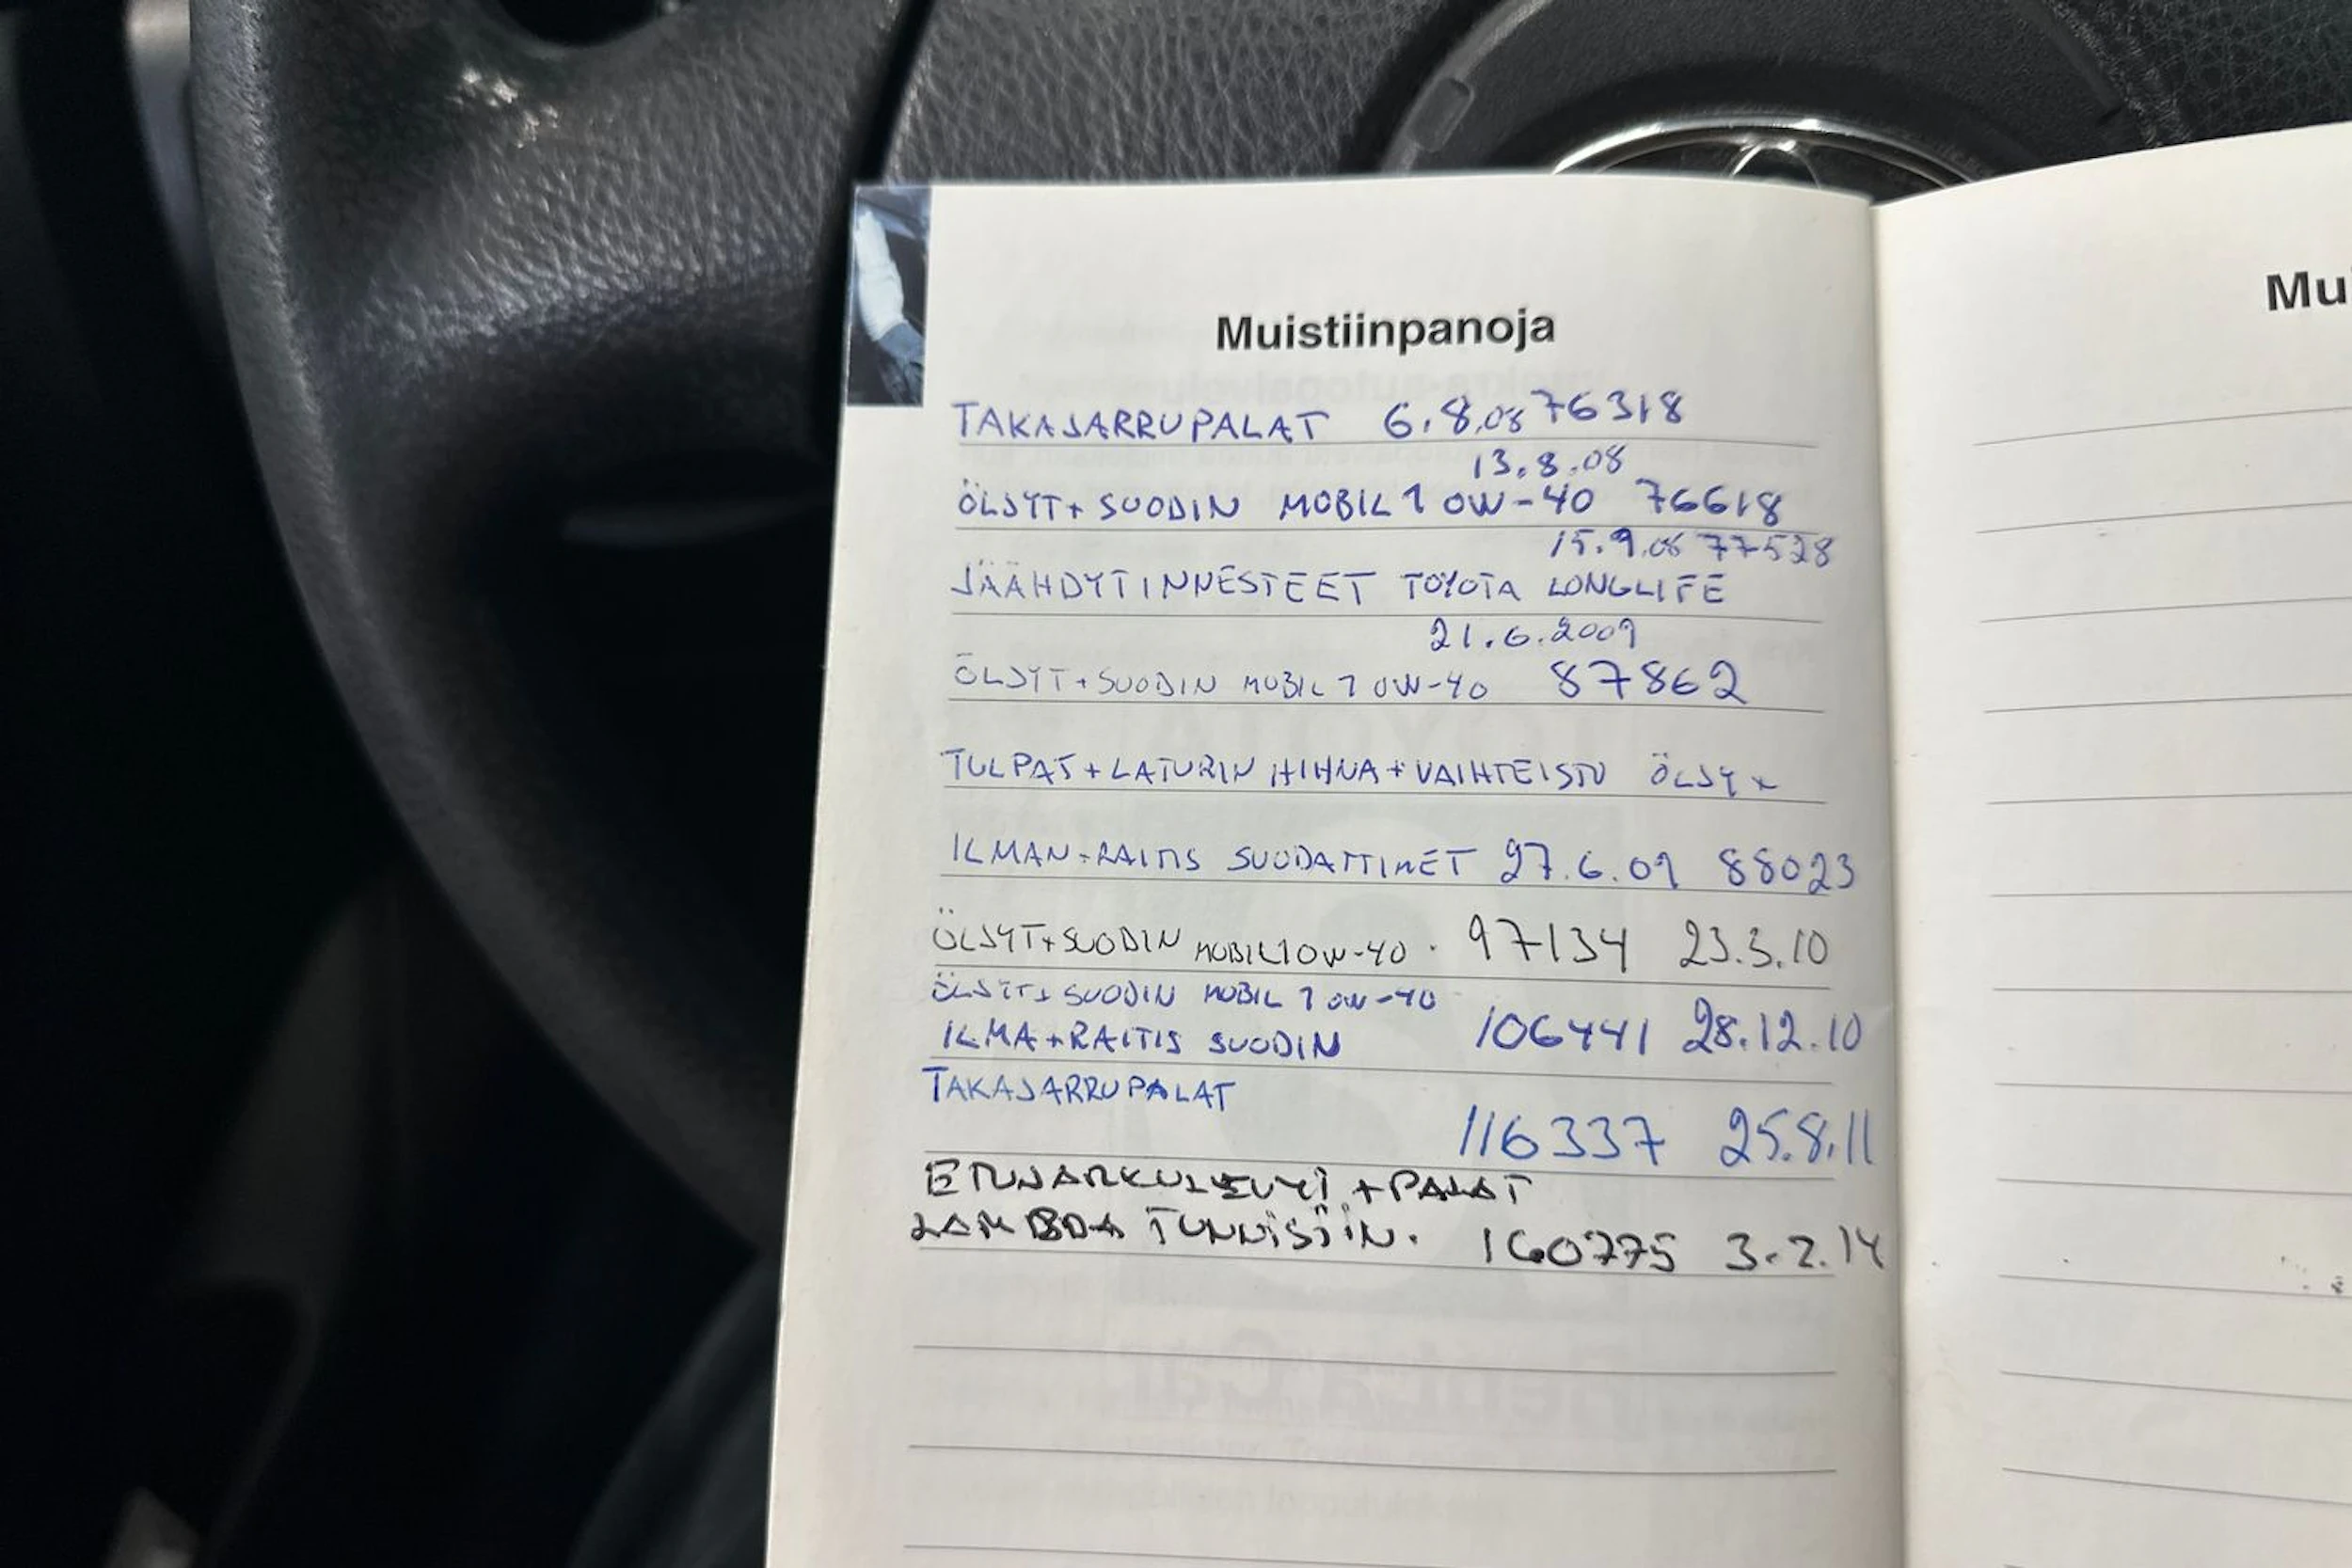 Muistiinpanoja
TAKAJARRUPALAT 6.8.08 76318
13.8.08
ÖLJYT+SUODIN MOBIL 1 0W-40 76618
15.9.08 77528
JÄÄHDYTINNESTEET TOYOTA LONGLIFE
21.6.2009
ÖLJYT+SUODIN MOBIL 1 0W-40 87862
TULPAT+LATURIN HIHNA+VAIHTEISTO ÖLJY+
ILMAN+RAITIS SUODATTIMET 27.6.09 88023
ÖLJYT+SUODIN MOBIL 1 0W-40. 97134 23.3.10
ÖLJYT+SUODIN MOBIL 1 0W-40
ILMA+RAITIS SUODIN 106441 28.12.10
TAKAJARRUPALAT
116337 25.8.11
ETUJARRULEVYT+PALAT
LAMBDA TUNNISTIN. 160775 3.2.14
Mu